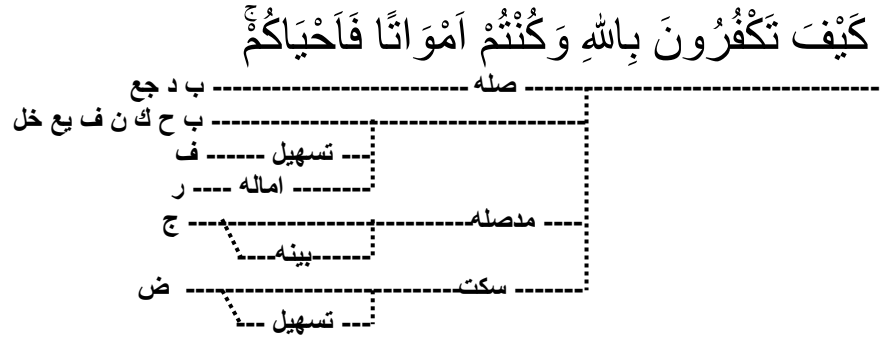 كَيْفَ تَكْفُرُونَ بِاللّٰهِ وَكُنْتُمْ اَمْوَاتًا فَاَحْيَاكُمْۚ
صله ب د جع
ب ح ك ن ف يع خل
تسهيل ف
اماله ر
مدصله ج
بينه
سكت ض
تسهيل